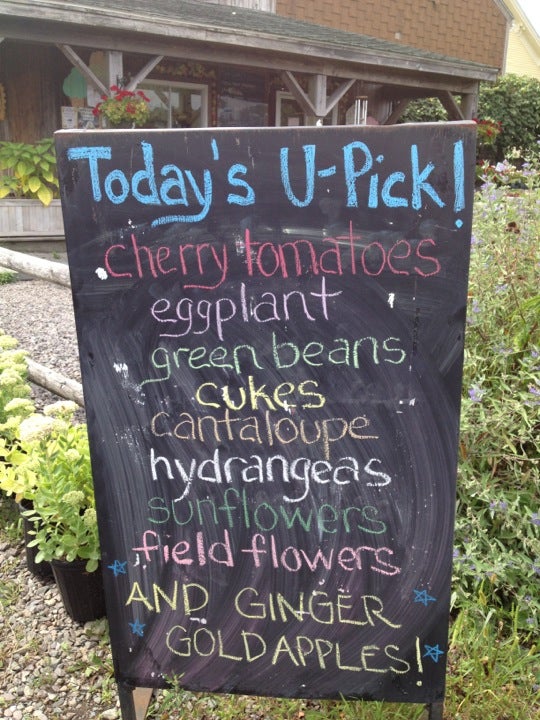 Today's U-Pick!
cherry tomatoes
eggplant
green beans
cukes
cantaloupe
hydrangeas
sunflowers
field flowers
AND GINGER
GOLD APPLES!